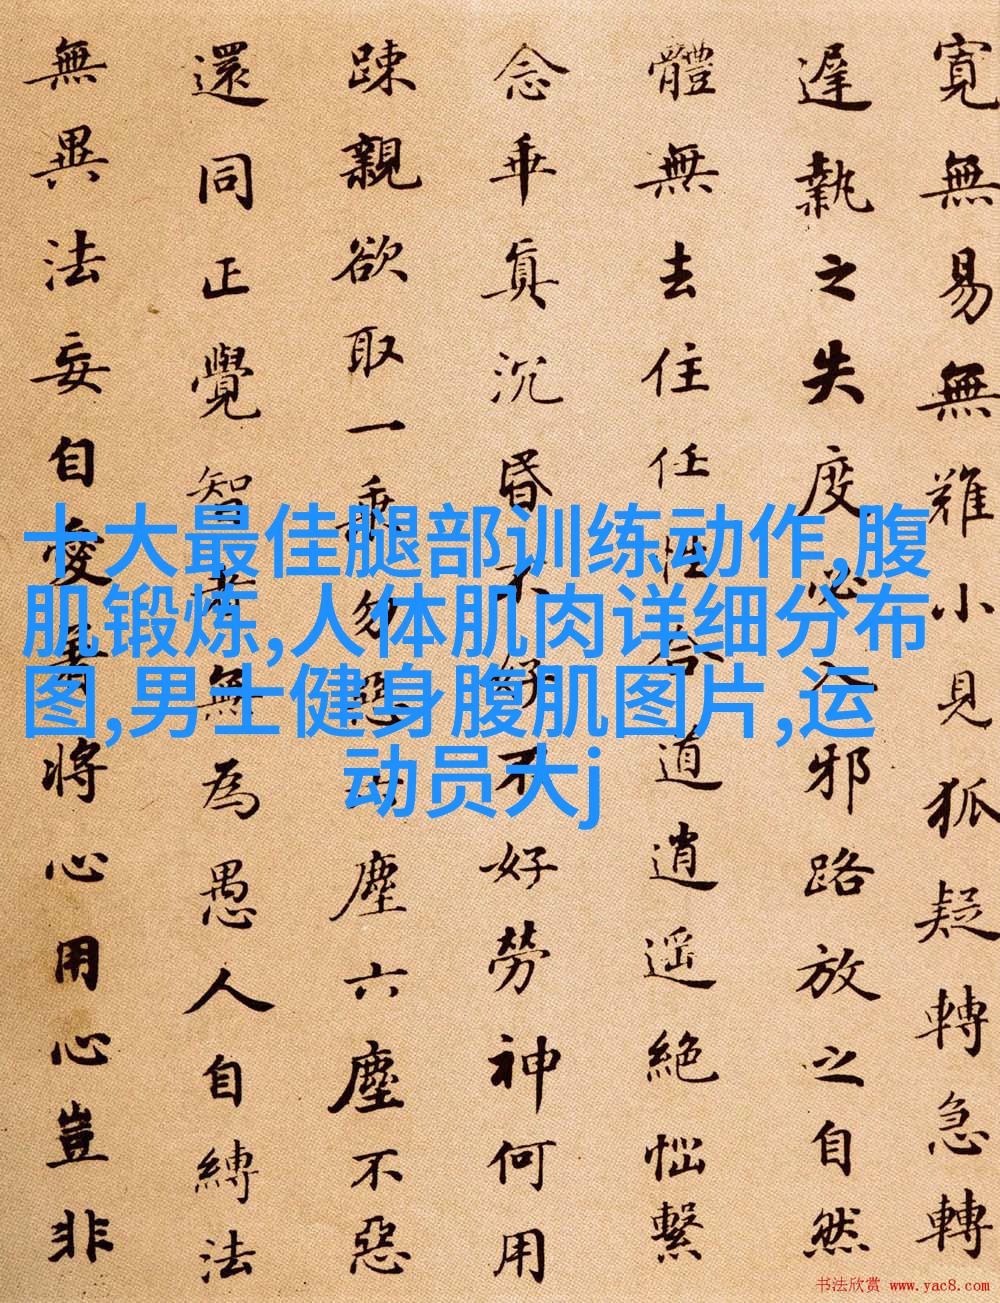 寬無易無難小見狐疑轉急轉
遲執之失度必入邪路放之自然
體無去住任性合道逍遙絕惱繫
念乖真沉昏不好不好勞神何用
踈親欲取一乘勿惡六塵六塵不惡
還同正覺智者無為愚人自縛法
無異法妄自愛著將心用心豈非
十大最佳腿部训练动作,腹
肌锻炼,人体肌肉详细分布
图,男士健身腹肌图片,运
动员大j
书法欣赏 www.yac8.com